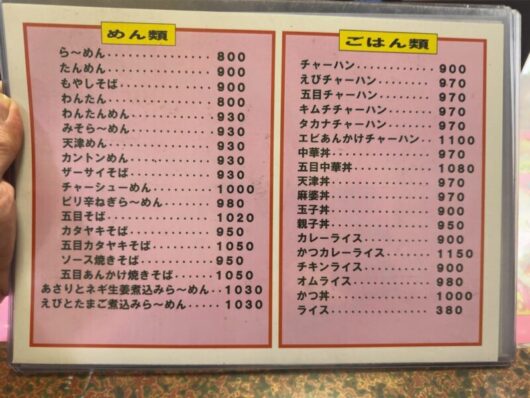 めん類
ら〜めん 800
たんめん 900
もやしそば 900
わんたん 800
わんたんめん 930
みそら〜めん 930
天津めん 930
カントンめん 930
ザーサイそば 930
チャーシューめん 1000
ピリ辛ねぎら〜めん 980
五目そば 1020
カタヤキそば 950
五目カタヤキそば 1050
ソース焼きそば 950
五目あんかけ焼きそば 1050
あさりとネギ生姜煮込みら〜めん 1030
えびとたまご煮込みら〜めん 1030
ごはん類
チャーハン 900
えびチャーハン 970
五目チャーハン 970
キムチチャーハン 970
タカナチャーハン 970
エビあんかけチャーハン 1100
中華丼 970
五目中華丼 1080
天津丼 970
麻婆丼 970
玉子丼 900
親子丼 950
カレーライス 900
かつカレーライス 1150
チキンライス 900
オムライス 980
かつ丼 1000
ライス 380